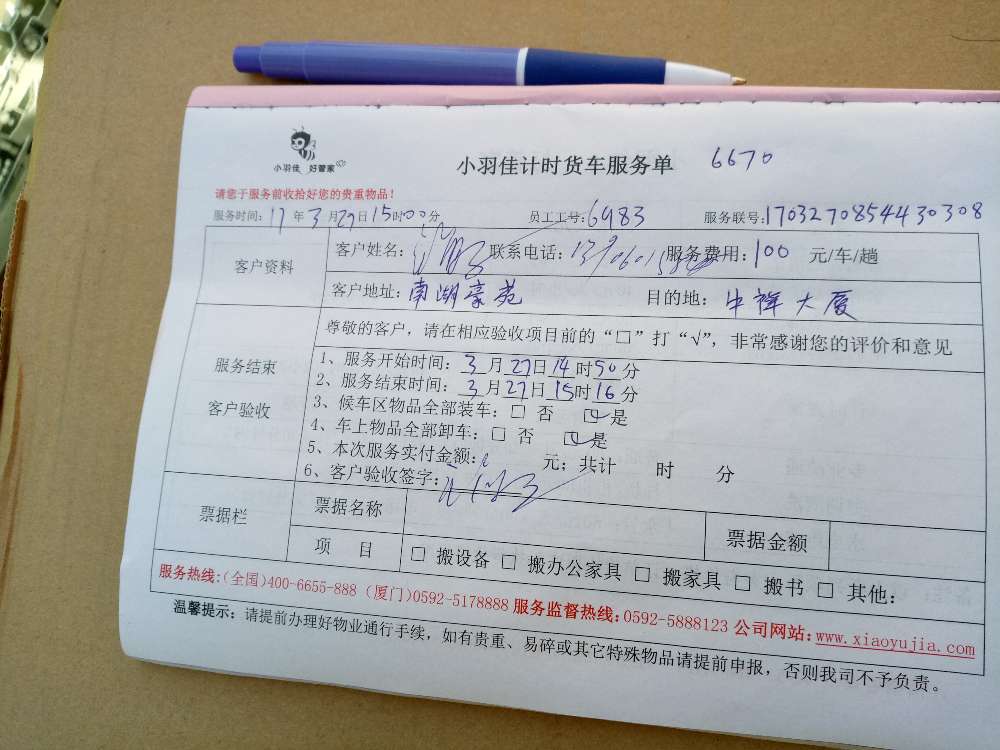 小羽佳 好管家
小羽佳计时货车服务单 6670
请您于服务前收拾好您的贵重物品！
服务时间：17年3月27日15时00分 员工工号：6983 服务联号：1703270854430308
客户资料
客户姓名： 联系电话： 服务费用：100 元/车/趟
客户地址：南湖豪苑 目的地：中祥大厦
服务结束
客户验收
尊敬的客户，请在相应验收项目前的“□”打“√”，非常感谢您的评价和意见
1、服务开始时间：3月27日14时50分
2、服务结束时间：3月27日15时16分
3、候车区物品全部装车：□ 否 ☑是
4、车上物品全部卸车：□ 否 ☑是
5、本次服务实付金额： 元；共计 时 分
6、客户验收签字：
票据栏
票据名称 票据金额
项 目 □ 搬设备 □ 搬办公家具 □ 搬家具 □ 搬书 □ 其他：
服务热线：（全国）400-6655-888（厦门）0592-5178888 服务监督热线：0592-5888123 公司网站：www.xiaoyujia.com
温馨提示：请提前办理好物业通行手续，如有贵重、易碎或其它特殊物品请提前申报，否则我司不予负责。